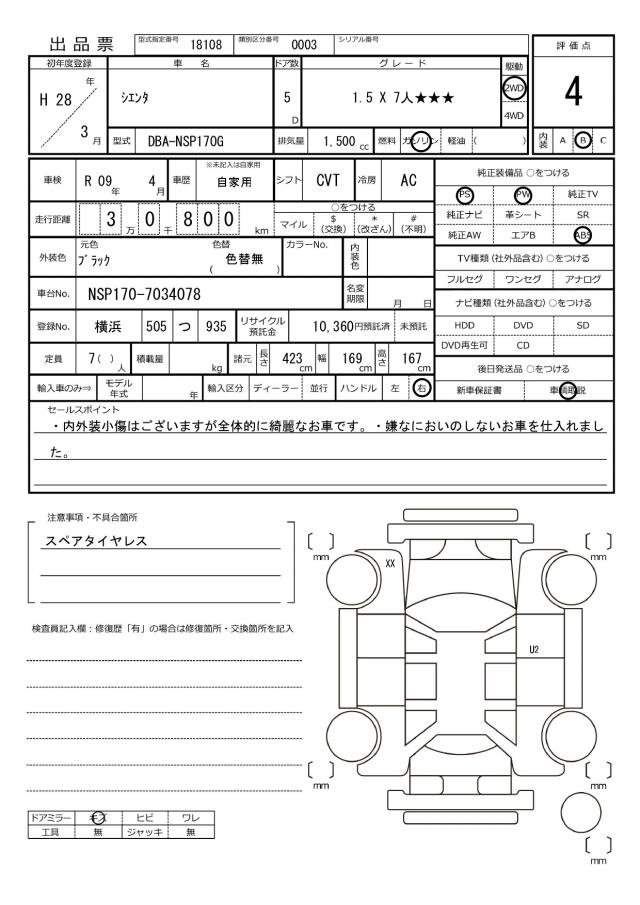 出品票 型式指定番号 18108 類別区分番号 0003 シリアル番号
評価点
初年度登録 車名 ドア数 グレード 駆動
H 28 年 3 月 シエンタ 5 D 1.5 X 7人★★★ 2WD 4WD
4
型式 DBA-NSP170G 排気量 1.500 cc 燃料 ガソリン 軽油 ( ) 内装 A B C
車検 R 09 年 4 月 車歴 ※未記入は自家用 自家用 シフト CVT 冷房 AC
純正装備品 ○をつける
PS PW 純正TV
純正ナビ 革シート SR
純正AW エアB ABS
走行距離 3 万 0 千 8 0 0 km ○をつける
マイル $ (交換) * (改ざん) # (不明)
外装色 元色 ブラック 色替 ( 色替無 ) カラーNo. 内装色
TV種類 (社外品含む) ○をつける
フルセグ ワンセグ アナログ
車台No. NSP170-7034078 名変期限 月 日
ナビ種類 (社外品含む) ○をつける
登録No. 横浜 505 つ 935 リサイクル預託金 10,360円預託済 未預託
HDD DVD SD
DVD再生可 CD
定員 7( ) 人 積載量 kg 諸元 長さ 423 cm 幅 169 cm 高さ 167 cm
後日発送品 ○をつける
輸入車のみ⇒ モデル年式 年 輸入区分 ディーラー 並行 ハンドル 左 右
新車保証書 車輌取説
セールスポイント
・内外装小傷はございますが全体的に綺麗なお車です。・嫌なにおいのしないお車を仕入れまし
た。
注意事項・不具合箇所
スペアタイヤレス
検査員記入欄：修復歴「有」の場合は修復箇所・交換箇所を記入
〔 〕 mm
〔 〕 mm
XX
U2
〔 〕 mm
〔 〕 mm
〔 〕 mm
ドアミラー キズ ヒビ ワレ
工具 無 ジャッキ 無